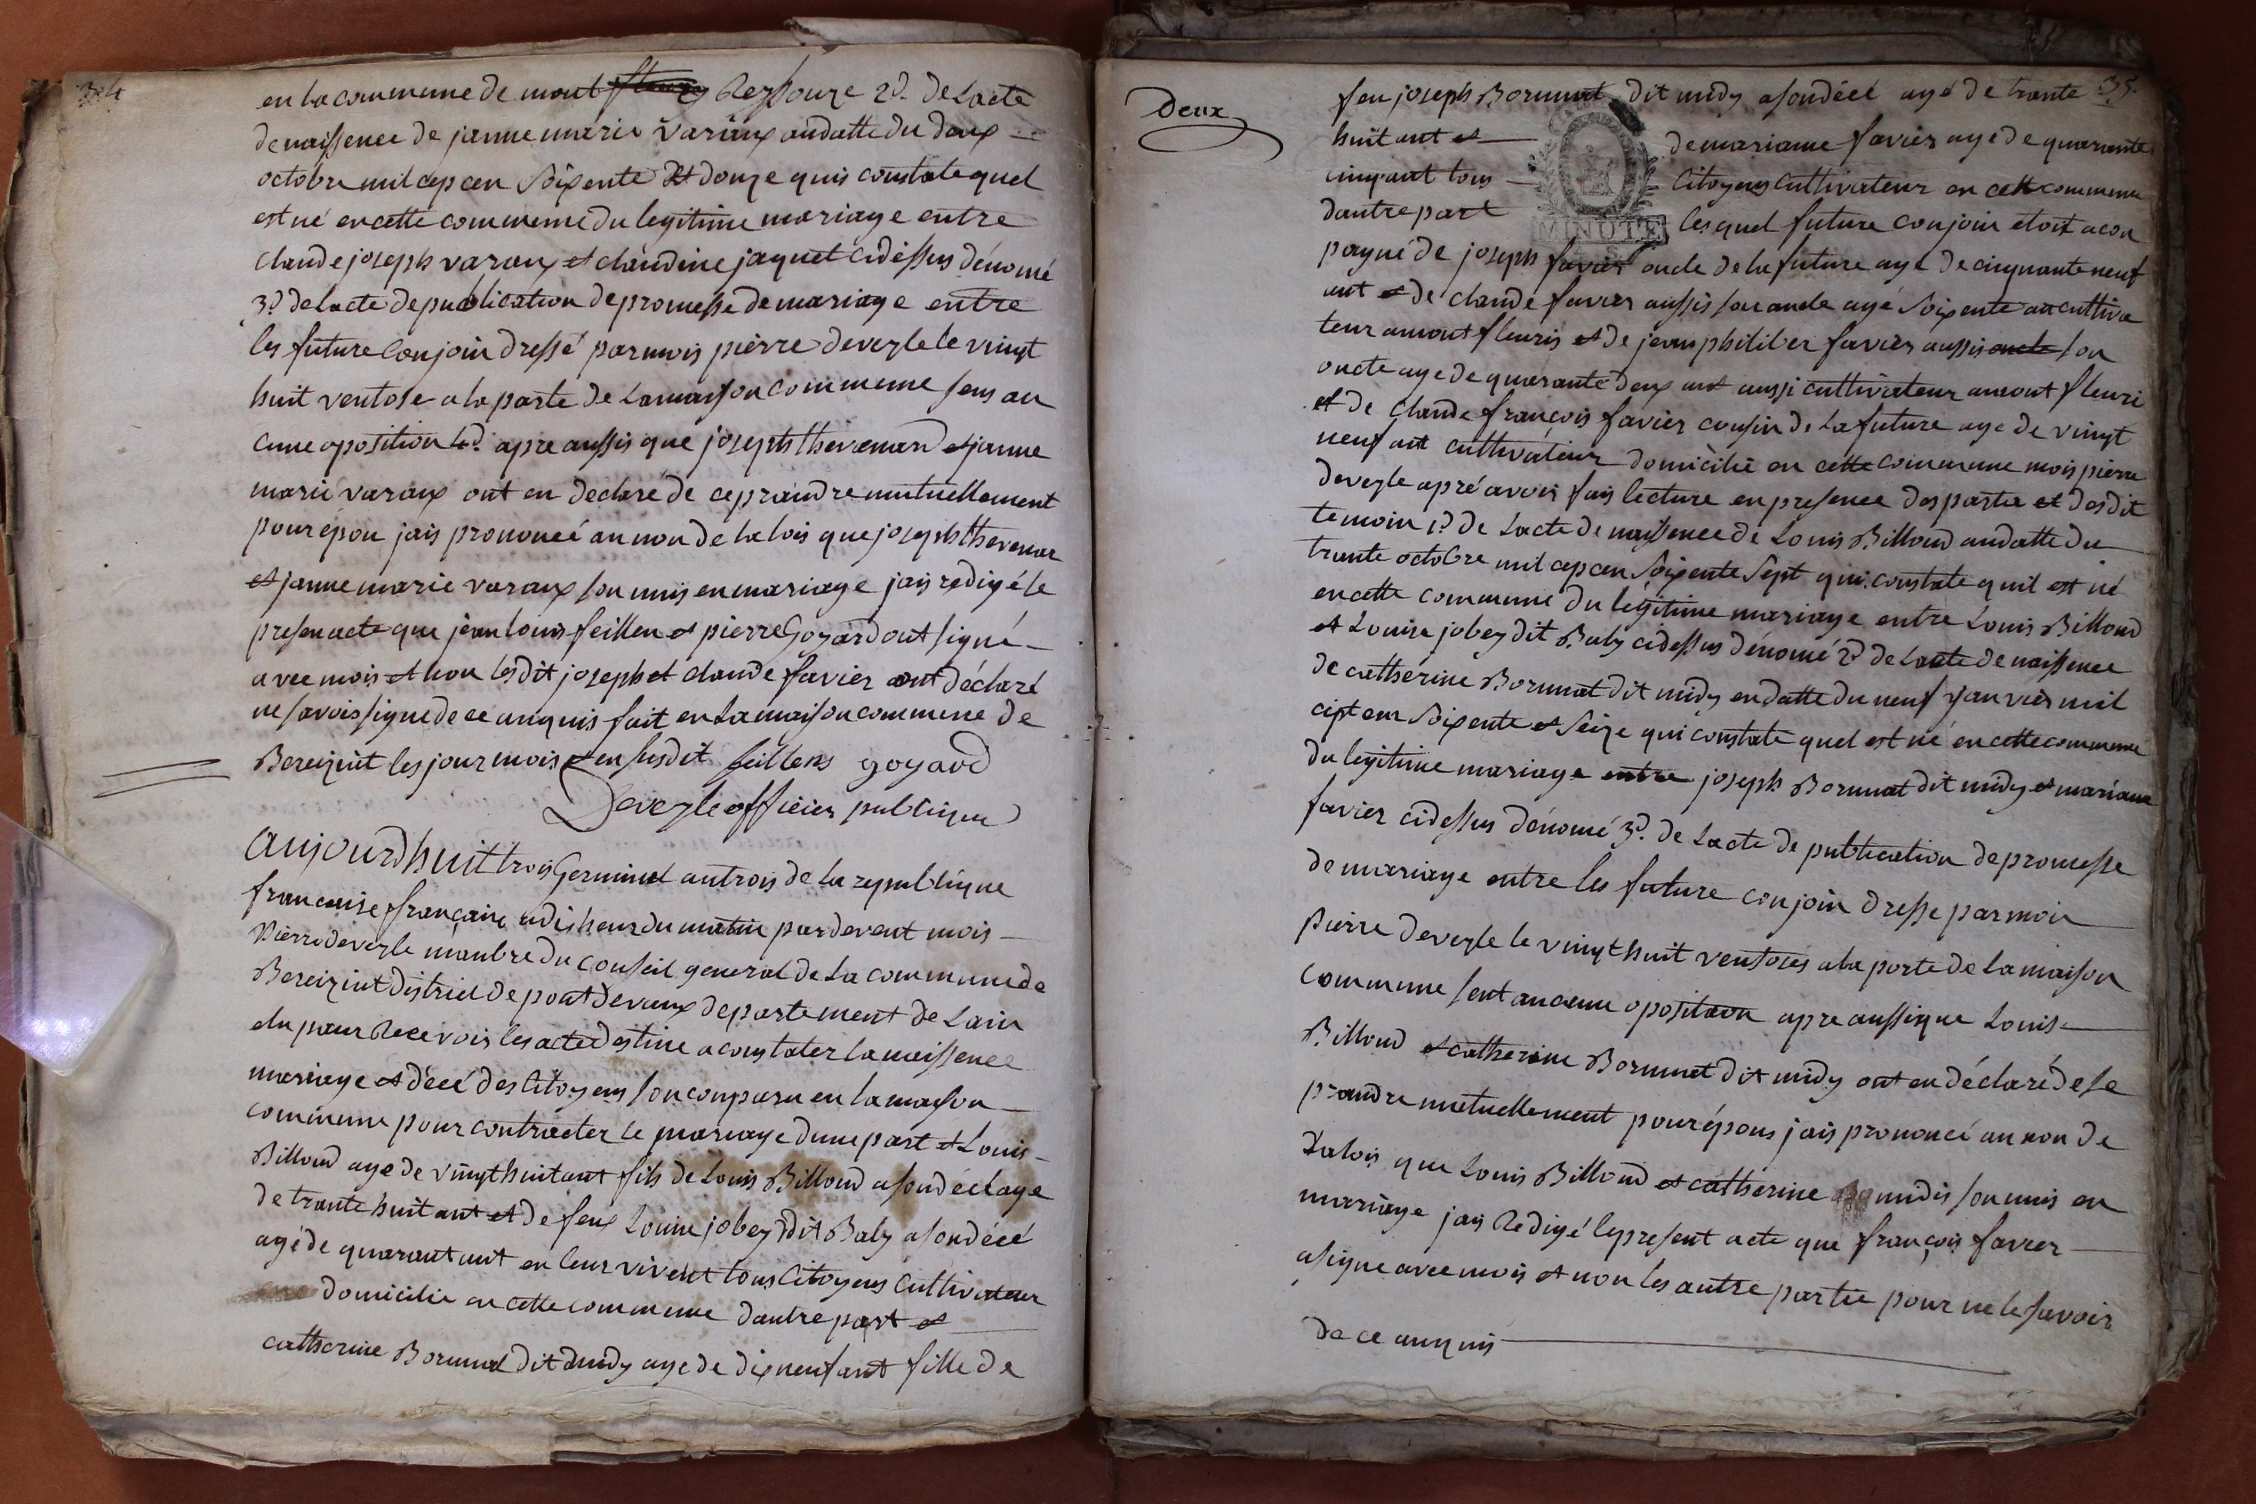 34
en la commune de mont fleury Reyssouze 2d. de Lacte
de naissence de janne marie varaux an datte du deux
octobre mil cep cen Soixente Et douze quis constate quel
est né en cette commune du legitime mariage entre
claude joseph varaux et claudine jaquet cidessus dénomé
3d. de lacte de publication de promesse de mariage entre
les future Conjoin dressé par mois pierre deveyle le vingt
huit ventose a la porte de La maison commune sens au
cune oposition 4d. apre aussis que joseph thevenard et janne
marie varaux ont en declaré de ce prandre mutuellement
pour épou jais prononcé au non de la lois que joseph thevenar
et janne marie varaux son unis en mariage jais redigé le
presen acte que jean louis feillen et pierre Goyard ont signé
avec mois et non les dit joseph et claude favier ont déclaré
ne savois signe de ce anquis fait en La maison commune de
Bereiziat les jour mois et en susdit feillens goyard
Deveyle officier publique
aujourdhuit trois Germinal an trois de la republique
francaise française a dis heur du matin par devent mois
Pierre deveyle manbre du Conseil general de La commune de
Bereiziat district de pont devaux departement de Lain
elu pour Recevois les acte destine a constater la naissence
mariage et décé des Citoyens son comparu en la maison
commune pour contracter le mariage dune part et Louis
Billoud age de vingt huit ant fils de Louis Billoud a son décé age
de trante huit ant et de feux Louise jobey dit Baly a son décé
agé de quarant ant en leur vivent tous Citoyens Cultivateur
domicilie en cette commune dautre part et
catherine Bornmat dit midy age de dix neuf ant fille de
Deux
35
feu joseph Bornmat dit midy a son décé agé de trante
huit ant et de mariane favier agé de quarente
cinq ant tous Citoyens Cultivateur en cette commune
dautre part les quel future conjoin etoit acon
MINUTE
pagné de joseph favier oncle de la future agé de cinquante neuf
ant et de claude favier aussis son oncle agé Soixente an cultiva
teur a mont fleuris et de jean philiber favier aussis oncle son
oncle age de quarante deux ant aussi cultivateur a mont fleuri
et de Claude françois favier cousin de La future age de vingt
neuf ant cultivateur domicilié en cette commune mois pierre
deveyle apré avois fais lecture en presence des partie et des dit
temoin 1d. de Lacte de naissence de Louis Billoud an datte du
trante octobre mil cep cen Soixente Sept qui constate quil est né
en cette commune du légitime mariage entre Louis Billoud
et Louise jobey dit Baly cidessus dénomé 2d. de Lacte de naissence
de catherine Bornmat dit midy en datte du neuf janvier mil
cept cen Soixente et Seize qui constate quel est né en cette commune
du legitime mariage entre joseph Bornmat dit midy et mariane
favier cidessus dénomé 3d. de Lacte de publication de promesse
de mariage entre les future conjoin dresse par moin
Pierre deveyle le vingt huit ventoses a la porte de La maison
commune sent aucune oposition apre aussi que Louis
Billoud et catherine Bornmat dit midy ont en déclaré de se
prandre mutuellement pour épous jais prononcé au non de
La lois que Louis Billoud et catherine midis son unis en
mariage jais Redigé le present acte que françois favier
a signe avec mois et non les autre partie pour ne le savoir
de ce anquis